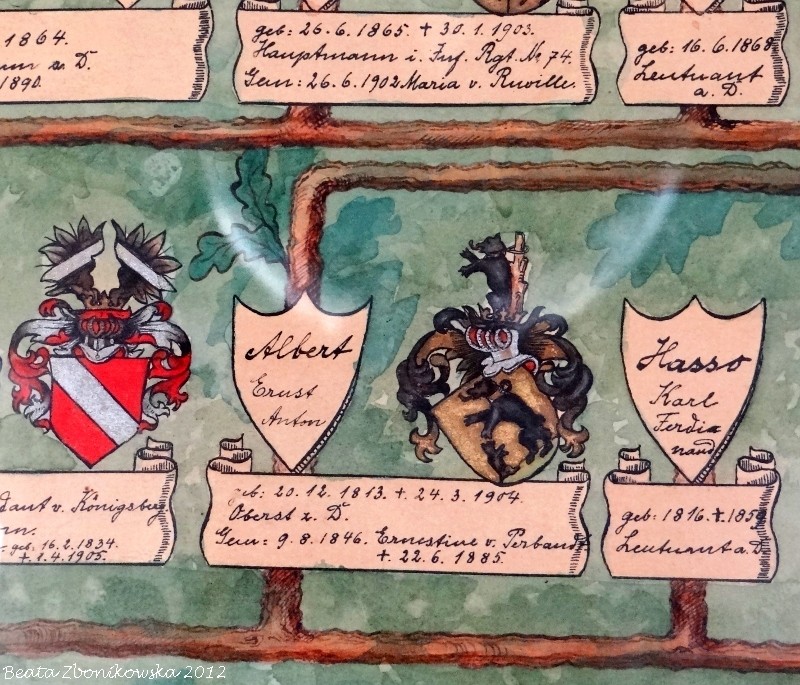 1864.
a. D.
1890.
geb: 26. 6. 1865. + 30. 1. 1903.
Hauptmann i. Inf. Rgt. No 74.
Gem: 26. 6. 1902 Maria v. Ruville.
geb: 16. 6. 1868
Leutnant
a. D.
Albert
Ernst
Anton
Hasso
Karl
Ferdi
nand
v. Königsberg
geb: 16. 2. 1834
+ 1. 4. 1905.
geb: 20. 12. 1813. + 24. 3. 1904.
Oberst z. D.
Gem: 9. 8. 1846. Ernestine v. Perbandt
+ 22. 6. 1885.
geb: 1816. +
Leutnant a. D.
Beata Zbonikowska 2012